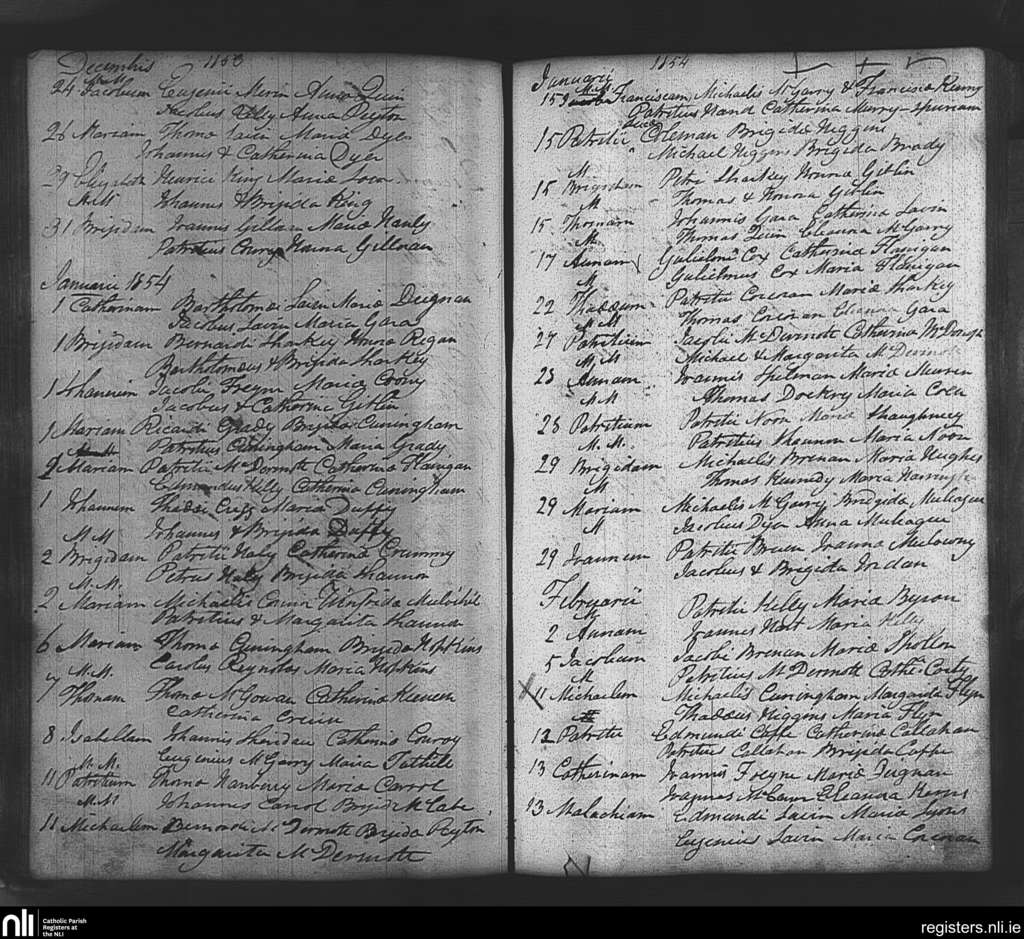 Decembris 1853
24 Jacobum Eugenii Merin Anna Quin
Jacobus Anna
26 Mariam Thoma Lavin Maria Dyer
Johannis & Catherina Dyer
29 Elizabeth Maurice King Maria
M.M Johannes & Brijida King
31 Brijidam Joannis Gilloran Maria Hanly
Patritius Conry Gilloran
Januarii 1854
1 Catherinam Bartholomei Lavin Maria Deignan
Jacobus Lavin Maria Gara
1 Brijidam Bernardi Sharkey Honora Regan
Bartholomeus & Brijida Sharkey
1 Johannem Jacobi Freyne Maria Conry
Jacobus & Catherina Giblin
1 Mariam Ricardi Grady Brijida Cuningham
Patritius Cuningham Maria Grady
1 Mariam Patritii McDermott Catherina Flanigan
Edmundus Kelly Catherina Cuningham
1 Johannem Thaddei Maria Duffy
M M Johannes & Brijida Duffy
2 Brigidam Patritii Haly Catherina Crummy
M.M. Petrus Haly Brijida Shannon
2 Mariam Michaelis Winifrida Mulvihil
Patritius & Margarita
6 Mariam Thoma Cuningham Brijida Hopkins
M.M. Carolus Reynolds Maria Hopkins
7 Thomam Thoma McGowan Catherina
Catherina
8 Isabellam Johannis Sheridan Catherina Conroy
M.M. Eugenius McGarry Maria
11 Patritium Thoma Hanberry Maria Carrol
M.M Johannes Carrol Brijida McCabe
11 Michaelem McDermott Brijida Peyton
Margarita McDermott
Januarii 1854
15 Franciscam Michaelis McGarry & Francisca
Patritius Hand Catherina
15 Patritii Coleman Brigida Higgins
Michael Higgins Brigida Brady
M
15 Brigidam Petri Sharkey Honora Giblin
M Thomas & Honora Giblin
15 Thomam Johannis Gara Catherina Lavin
M Thomas Quin Eleanora McGarry
17 Annam Gulielmi Cox Catherina Flanigan
M Gulielmus Cox Maria Flanigan
22 Thaddeum Patritii Corcoran Maria Sharkey
M M Thomas Corcoran Eleanor Gara
27 Patritium Jacobi McDermott Catherina McDonagh
M M Michael & Margarita McDermott
23 Annam Joannis Spelman Maria
M.M Thomas Dockry Maria
23 Patritium Patritii Noon Maria Shaughnesy
M.M. Patritius Shannon Maria Noon
29 Brigidam Michaelis Brenan Maria Hughes
M Thomas Kennedy Maria
29 Mariam Michaelis McGarry Bridgida
M Jacobus Dyer Anna
29 Joannem Patritii Joanna
Jacobus & Brigida Jordan
Februarii
2 Annam Patritii Kelly Maria Byron
Joannes Hart Maria Kelly
5 Jacobum Jacobi Brenan Maria
M Patritius McDermott Cathe.
11 Michaelem Michaelis Cuningham Margarida Flyn
Thaddeus Higgins Maria Flyn
12 Patritii Edmundi Catherina Callahan
Patritius Callahan Brigida
13 Catherinam Joannis Freyne Maria Dugnan
Eleanora
13 Malachiam Edmundi Lavin Maria Lyons
Eugenius Lavin Maria Corcoran
nli
Catholic Parish
Registers at
the NLI
registers.nli.ie